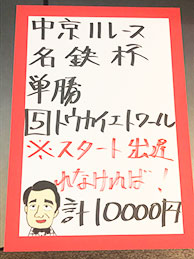 中京11レース
名鉄杯
単勝
5トウカイエトワール
※スタート出遅
れなければ!
計10000円